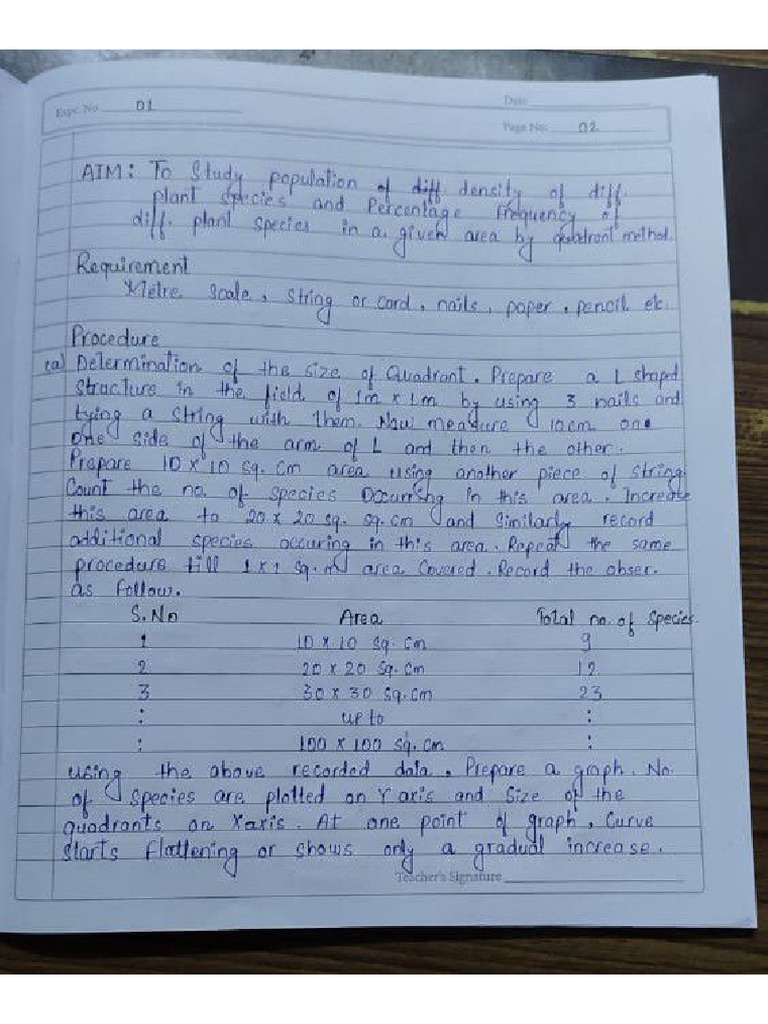 Expt. No. 01
Date
Page No. 02
AIM: To Study population of diff. density of diff.
plant species and Percentage Frequency of
diff. plant species in a given area by quadrant method.
Requirement
Metre scale, string or cord, nails, paper, pencil etc.
Procedure
(a) Determination of the size of Quadrant. Prepare a L shaped
structure in the field of 1m x 1m by using 3 nails and
tying a string with them. Now measure 10cm one
one side of the arm of L and then the other.
Prepare 10 x 10 sq. cm area using another piece of string
Count the no. of species Occurring in this area. Increase
this area to 20 x 20 sq. sq. cm and Similarly record
additional species occuring in this area. Repeat the same
procedure till 1 x 1 sq. m area Covered. Record the obser.
as follow.
S.No Area Total no. of Species.
1 10 x 10 sq. cm 9
2 20 x 20 sq. cm 12
3 30 x 30 sq. cm 23
: up to :
: 100 x 100 sq. cm :
using the above recorded data, Prepare a graph. No.
of species are plotted on Y axis and Size of the
quadrants on X axis. At one point of graph, Curve
starts flattening or shows only a gradual increase.
Teacher's Signature